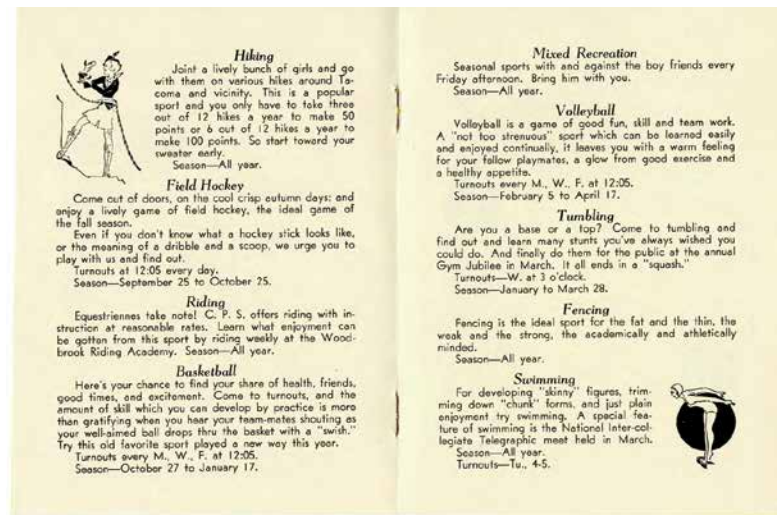 Hiking
Joint a lively bunch of girls and go
with them on various hikes around Ta-
coma and vicinity. This is a popular
sport and you only have to take three
out of 12 hikes a year to make 50
points or 6 out of 12 hikes a year to
make 100 points. So start toward your
sweater early.
Season—All year.
Field Hockey
Come out of doors, on the cool crisp autumn days; and
enjoy a lively game of field hockey, the ideal game of
the fall season.
Even if you don't know what a hockey stick looks like,
or the meaning of a dribble and a scoop, we urge you to
play with us and find out.
Turnouts at 12:05 every day.
Season—September 25 to October 25.
Riding
Equestriennes take note! C. P. S. offers riding with in-
struction at reasonable rates. Learn what enjoyment can
be gotten from this sport by riding weekly at the Wood-
brook Riding Academy. Season—All year.
Basketball
Here's your chance to find your share of health, friends,
good times, and excitement. Come to turnouts, and the
amount of skill which you can develop by practice is more
than gratifying when you hear your team-mates shouting as
your well-aimed ball drops thru the basket with a "swish."
Try this old favorite sport played a new way this year.
Turnouts every M., W., F. at 12:05.
Season—October 27 to January 17.
Mixed Recreation
Seasonal sports with and against the boy friends every
Friday afternoon. Bring him with you.
Season—All year.
Volleyball
Volleyball is a game of good fun, skill and team work.
A "not too strenuous" sport which can be learned easily
and enjoyed continually, it leaves you with a warm feeling
for your fellow playmates, a glow from good exercise and
a healthy appetite.
Turnouts every M., W., F. at 12:05.
Season—February 5 to April 17.
Tumbling
Are you a base or a top? Come to tumbling and
find out and learn many stunts you've always wished you
could do. And finally do them for the public at the annual
Gym Jubilee in March. It all ends in a "squash."
Turnouts—W. at 3 o'clock.
Season—January to March 28.
Fencing
Fencing is the ideal sport for the fat and the thin, the
weak and the strong, the academically and athletically
minded.
Season—All year.
Swimming
For developing "skinny" figures, trim-
ming down "chunk" forms, and just plain
enjoyment try swimming. A special fea-
ture of swimming is the National Inter-col-
legiate Telegraphic meet held in March.
Season—All year.
Turnouts—Tu., 4-5.